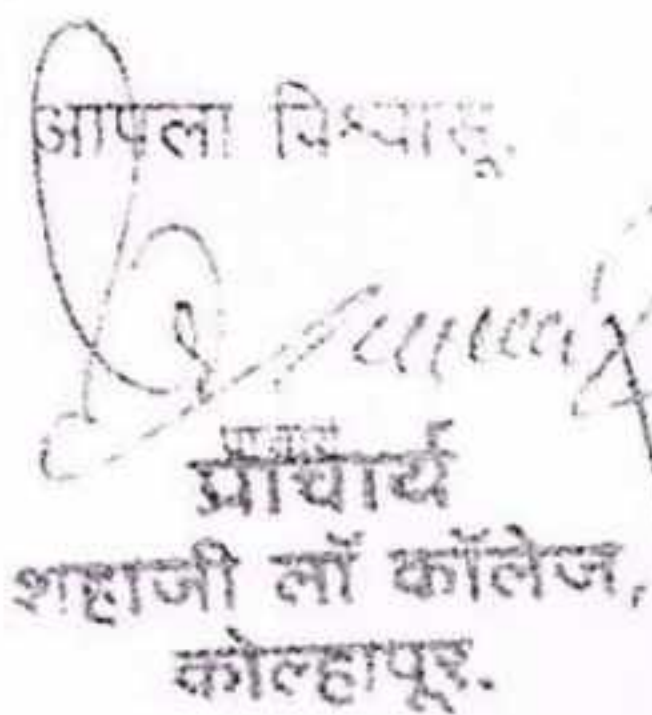 आपला विश्वासू.
प्राचार्य
शहाजी लॉ कॉलेज,
कोल्हापूर.